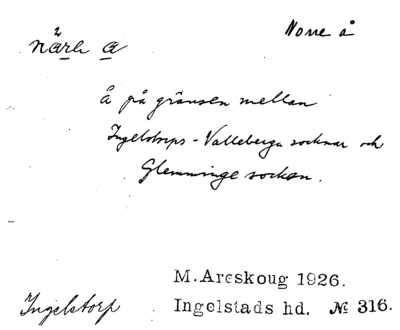 Norre å
å på gränsen mellan
Ingelstorps-Valleberga socknar och
Glemminge socken.
M.Areskoug 1926.
Ingelstorp
Ingelstads hd. № 316.